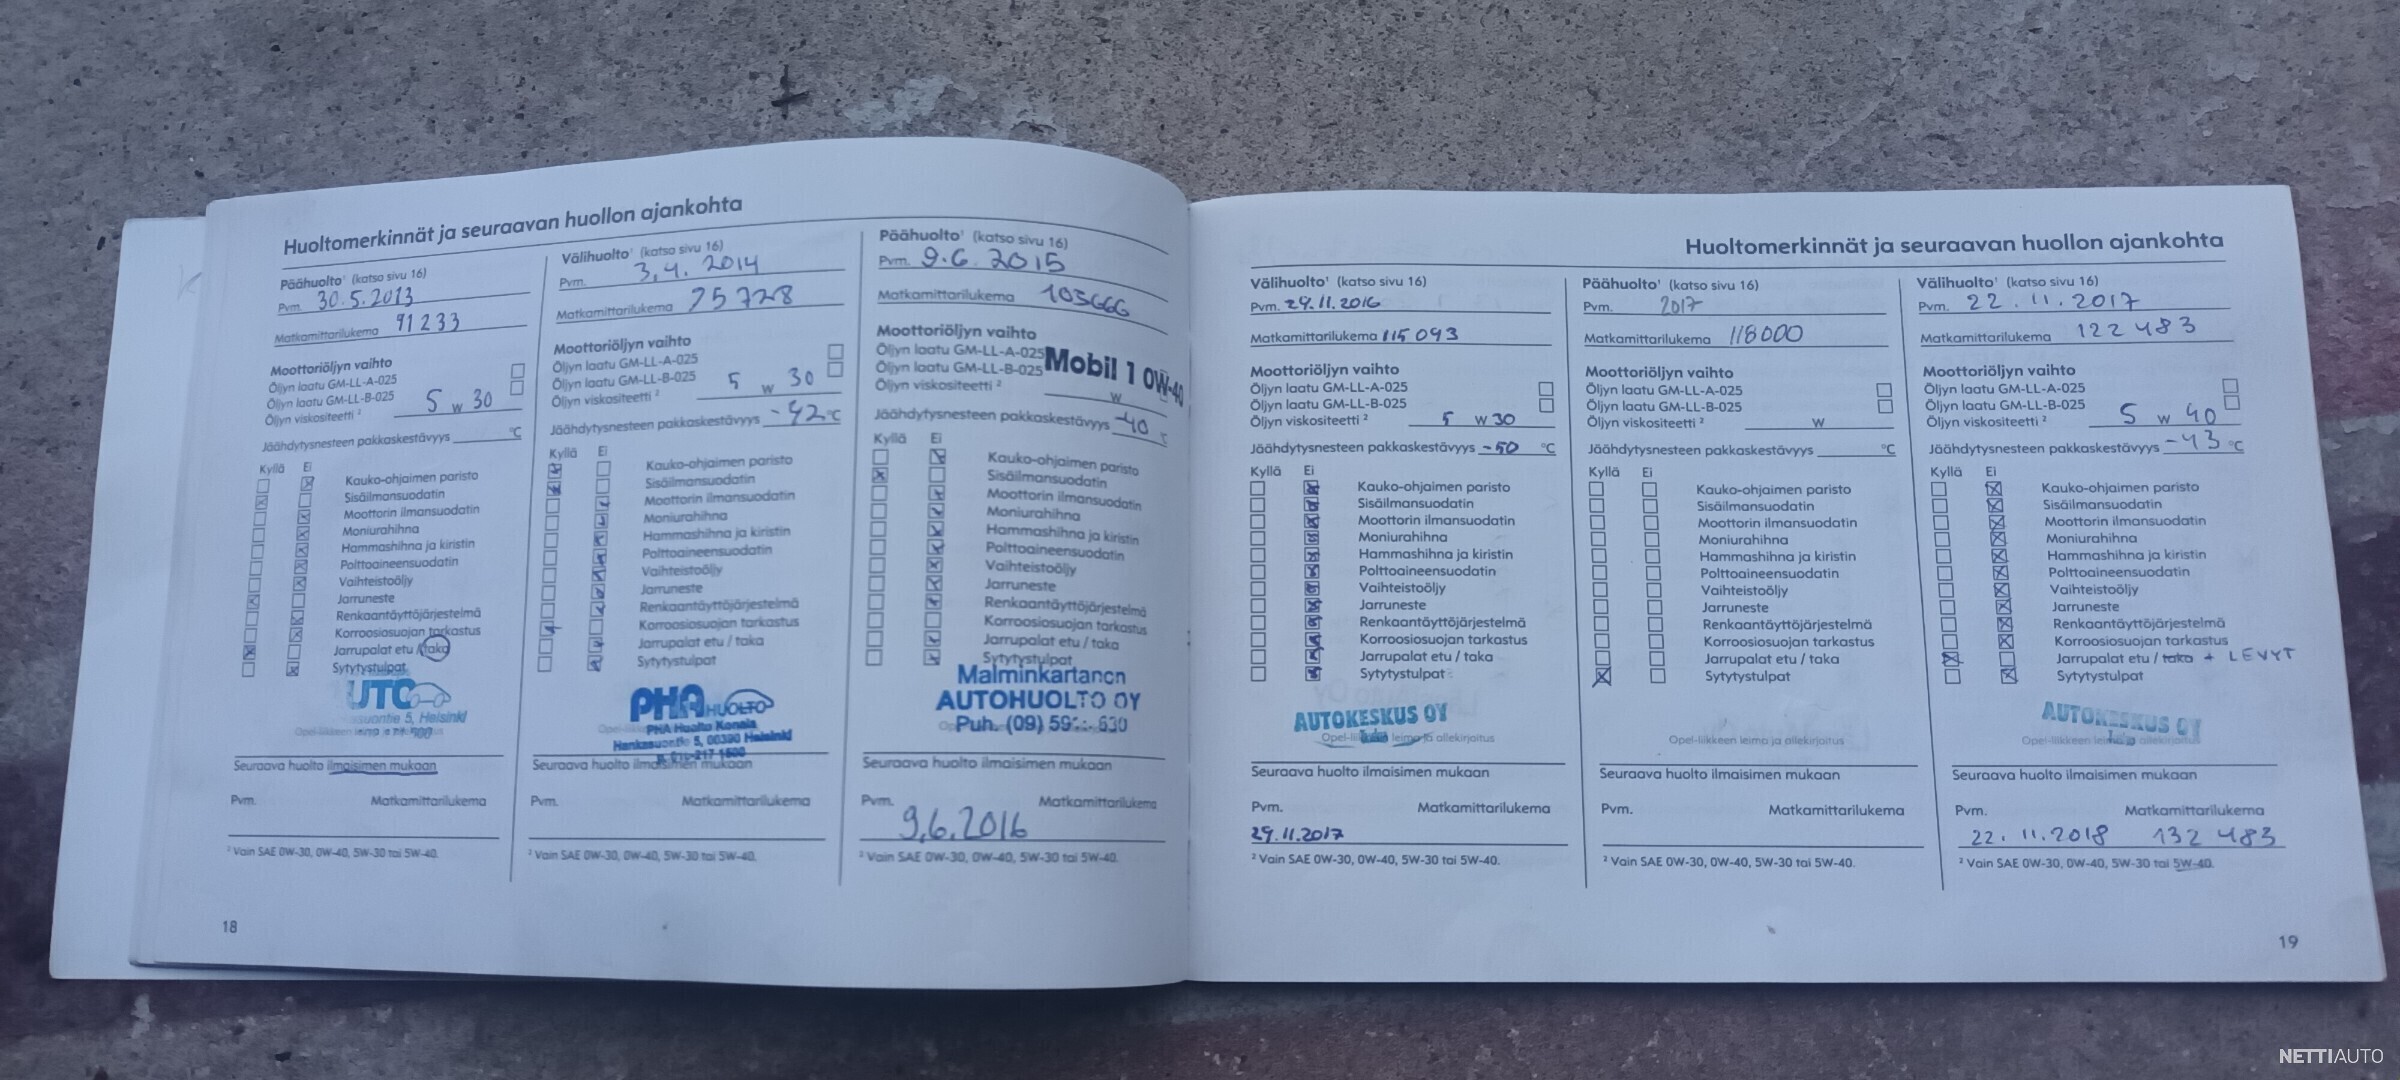 Huoltomerkinnät ja seuraavan huollon ajankohta
Päähuolto¹ (katso sivu 16)
Pvm. 30.5.2013
Matkamittarilukema 91233
Moottoriöljyn vaihto
Öljyn laatu GM-LL-A-025
Öljyn laatu GM-LL-B-025
Öljyn viskositeetti ² 5 W 30
Jäähdytysnesteen pakkaskestävyys °C
Kyllä Ei
Kauko-ohjaimen paristo
Sisäilmansuodatin
Moottorin ilmansuodatin
Moniurahihna
Hammashihna ja kiristin
Polttoaineensuodatin
Vaihteistoöljy
Jarruneste
Renkaantäyttöjärjestelmä
Korroosiosuojan tarkastus
Jarrupalat etu / taka
Sytytystulpat
UTC
5, Helsinki
Seuraava huolto ilmaisimen mukaan
Pvm. Matkamittarilukema
² Vain SAE 0W-30, 0W-40, 5W-30 tai 5W-40.
18
Välihuolto¹ (katso sivu 16)
Pvm. 3.4.2014
Matkamittarilukema 95728
Moottoriöljyn vaihto
Öljyn laatu GM-LL-A-025
Öljyn laatu GM-LL-B-025
Öljyn viskositeetti ² 5 W 30
Jäähdytysnesteen pakkaskestävyys -42 °C
Kyllä Ei
Kauko-ohjaimen paristo
Sisäilmansuodatin
Moottorin ilmansuodatin
Moniurahihna
Hammashihna ja kiristin
Polttoaineensuodatin
Vaihteistoöljy
Jarruneste
Renkaantäyttöjärjestelmä
Korroosiosuojan tarkastus
Jarrupalat etu / taka
Sytytystulpat
PHA HUOLTO
PHA Huolto Konala
Hankasuontie 5, 00390 Helsinki
Seuraava huolto ilmaisimen mukaan
Pvm. Matkamittarilukema
² Vain SAE 0W-30, 0W-40, 5W-30 tai 5W-40.
Päähuolto¹ (katso sivu 16)
Pvm. 9.6.2015
Matkamittarilukema 105666
Moottoriöljyn vaihto
Öljyn laatu GM-LL-A-025
Öljyn laatu GM-LL-B-025
Mobil 1 0W-40
Öljyn viskositeetti ² W
Jäähdytysnesteen pakkaskestävyys -40 °C
Kyllä Ei
Kauko-ohjaimen paristo
Sisäilmansuodatin
Moottorin ilmansuodatin
Moniurahihna
Hammashihna ja kiristin
Polttoaineensuodatin
Vaihteistoöljy
Jarruneste
Renkaantäyttöjärjestelmä
Korroosiosuojan tarkastus
Jarrupalat etu / taka
Sytytystulpat
Malminkartanon
AUTOHUOLTO OY
Puh. (09)
Seuraava huolto ilmaisimen mukaan
Pvm. Matkamittarilukema
9.6.2016
² Vain SAE 0W-30, 0W-40, 5W-30 tai 5W-40.
Huoltomerkinnät ja seuraavan huollon ajankohta
Välihuolto¹ (katso sivu 16)
Pvm. 29.11.2016
Matkamittarilukema 115 093
Moottoriöljyn vaihto
Öljyn laatu GM-LL-A-025
Öljyn laatu GM-LL-B-025
Öljyn viskositeetti ² 5 W 30
Jäähdytysnesteen pakkaskestävyys -50 °C
Kyllä Ei
Kauko-ohjaimen paristo
Sisäilmansuodatin
Moottorin ilmansuodatin
Moniurahihna
Hammashihna ja kiristin
Polttoaineensuodatin
Vaihteistoöljy
Jarruneste
Renkaantäyttöjärjestelmä
Korroosiosuojan tarkastus
Jarrupalat etu / taka
Sytytystulpat
AUTOKESKUS OY
Opel-liikkeen leima ja allekirjoitus
Seuraava huolto ilmaisimen mukaan
Pvm. Matkamittarilukema
29.11.2017
² Vain SAE 0W-30, 0W-40, 5W-30 tai 5W-40.
Päähuolto¹ (katso sivu 16)
Pvm. 2017
Matkamittarilukema 118000
Moottoriöljyn vaihto
Öljyn laatu GM-LL-A-025
Öljyn laatu GM-LL-B-025
Öljyn viskositeetti ² W
Jäähdytysnesteen pakkaskestävyys °C
Kyllä Ei
Kauko-ohjaimen paristo
Sisäilmansuodatin
Moottorin ilmansuodatin
Moniurahihna
Hammashihna ja kiristin
Polttoaineensuodatin
Vaihteistoöljy
Jarruneste
Renkaantäyttöjärjestelmä
Korroosiosuojan tarkastus
Jarrupalat etu / taka
Sytytystulpat
Opel-liikkeen leima ja allekirjoitus
Seuraava huolto ilmaisimen mukaan
Pvm. Matkamittarilukema
² Vain SAE 0W-30, 0W-40, 5W-30 tai 5W-40.
Välihuolto¹ (katso sivu 16)
Pvm. 22.11.2017
Matkamittarilukema 122 483
Moottoriöljyn vaihto
Öljyn laatu GM-LL-A-025
Öljyn laatu GM-LL-B-025
Öljyn viskositeetti ² 5 W 40
Jäähdytysnesteen pakkaskestävyys -43 °C
Kyllä Ei
Kauko-ohjaimen paristo
Sisäilmansuodatin
Moottorin ilmansuodatin
Moniurahihna
Hammashihna ja kiristin
Polttoaineensuodatin
Vaihteistoöljy
Jarruneste
Renkaantäyttöjärjestelmä
Korroosiosuojan tarkastus
Jarrupalat etu / taka + LEVYT
Sytytystulpat
AUTOKESKUS OY
Opel-liikkeen leima ja allekirjoitus
Seuraava huolto ilmaisimen mukaan
Pvm. Matkamittarilukema
22.11.2018 132 483
² Vain SAE 0W-30, 0W-40, 5W-30 tai 5W-40.
19
NETTIAUTO